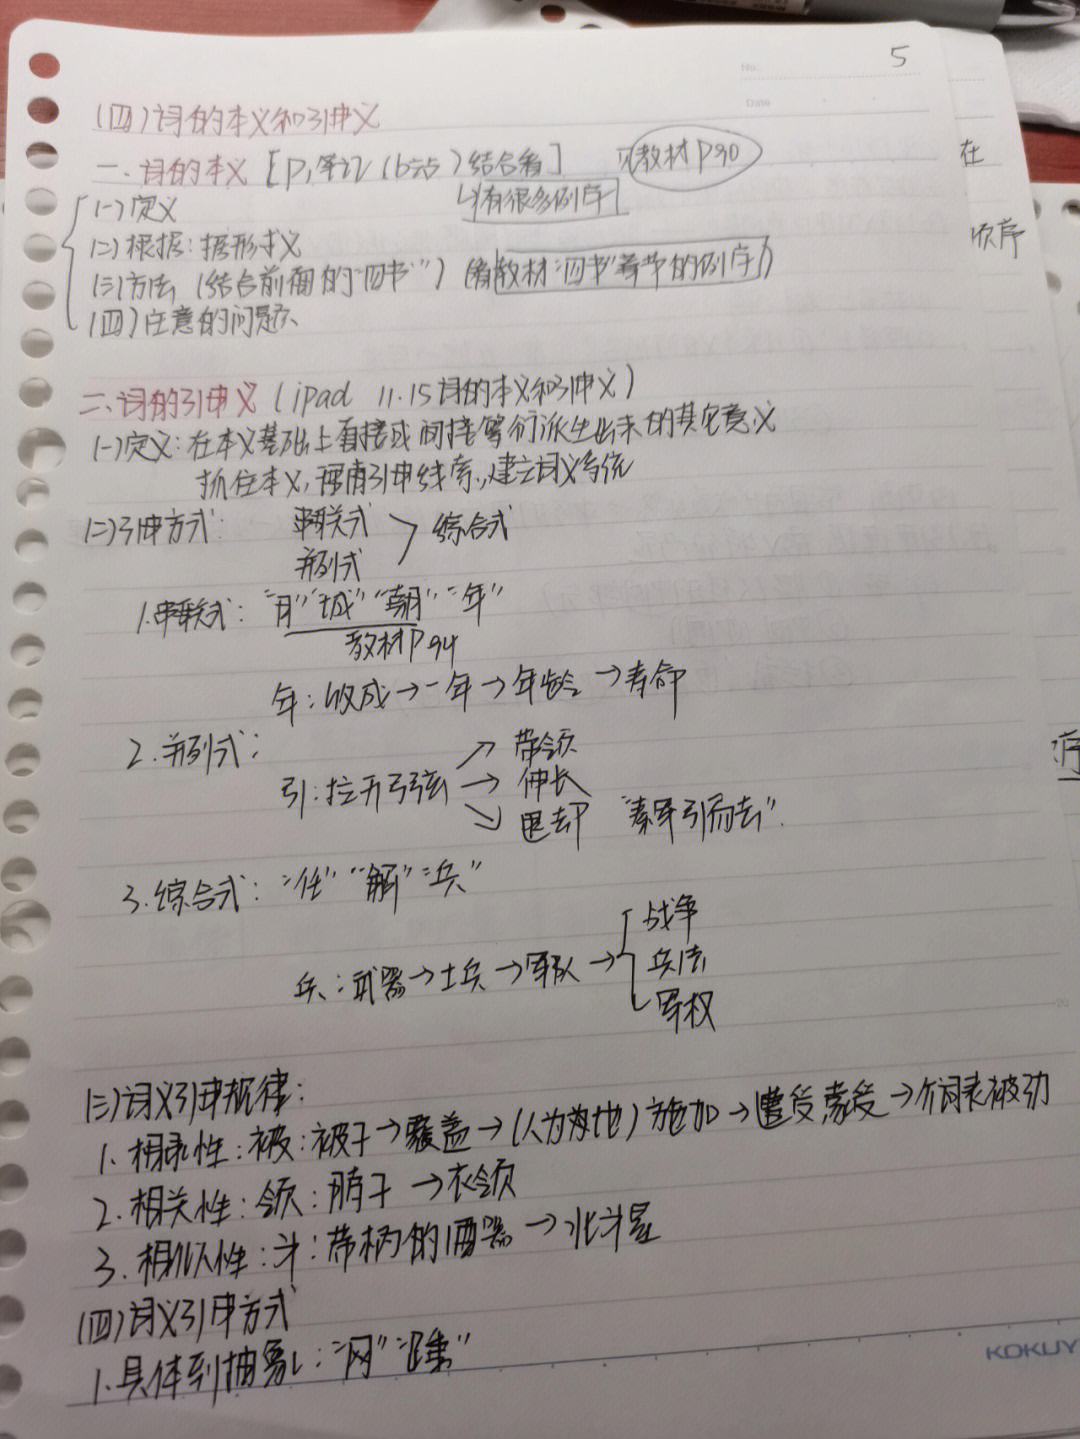 5
No.
Date
(四)词的本义和引申义
一.词的本义 [P1笔记 (b站) 结合看] 见教材P90
(一)定义 ↳有很多例字
(二)根据:据形求义
(三)方法 (结合前面的"四书") (看教材"四书"章节的例字)
(四)注意的问题
在
顺序
二.词的引申义 (iPad 11.15词的本义和引申义)
(一)定义:在本义基础上直接或间接等衍派生出来的其它意义
抓住本义,理清引申线索,建立词义系统
(二)引申方式: 串联式 > 综合式
并列式
1.串联式:"月" "城" "朝" "年"
教材P94
年:收成→一年→年龄→寿命
2.并列式:
引:拉开弓弦 → 带领
→ 伸长
→ 退却 "秦军引而去".
3.综合式:"任" "解" "兵"
兵:武器→士兵→军队→ 战争
兵法
军权
(三)词义引申规律:
1.相承性:被:被子→覆盖→(人为为地)施加→遭受蒙受→介词表被动
2.相关性:领:脖子→衣领
3.相似性:斗:带柄的酒器→北斗星
(四)词义引申方式
1.具体到抽象:"网" "集"
KOKUY